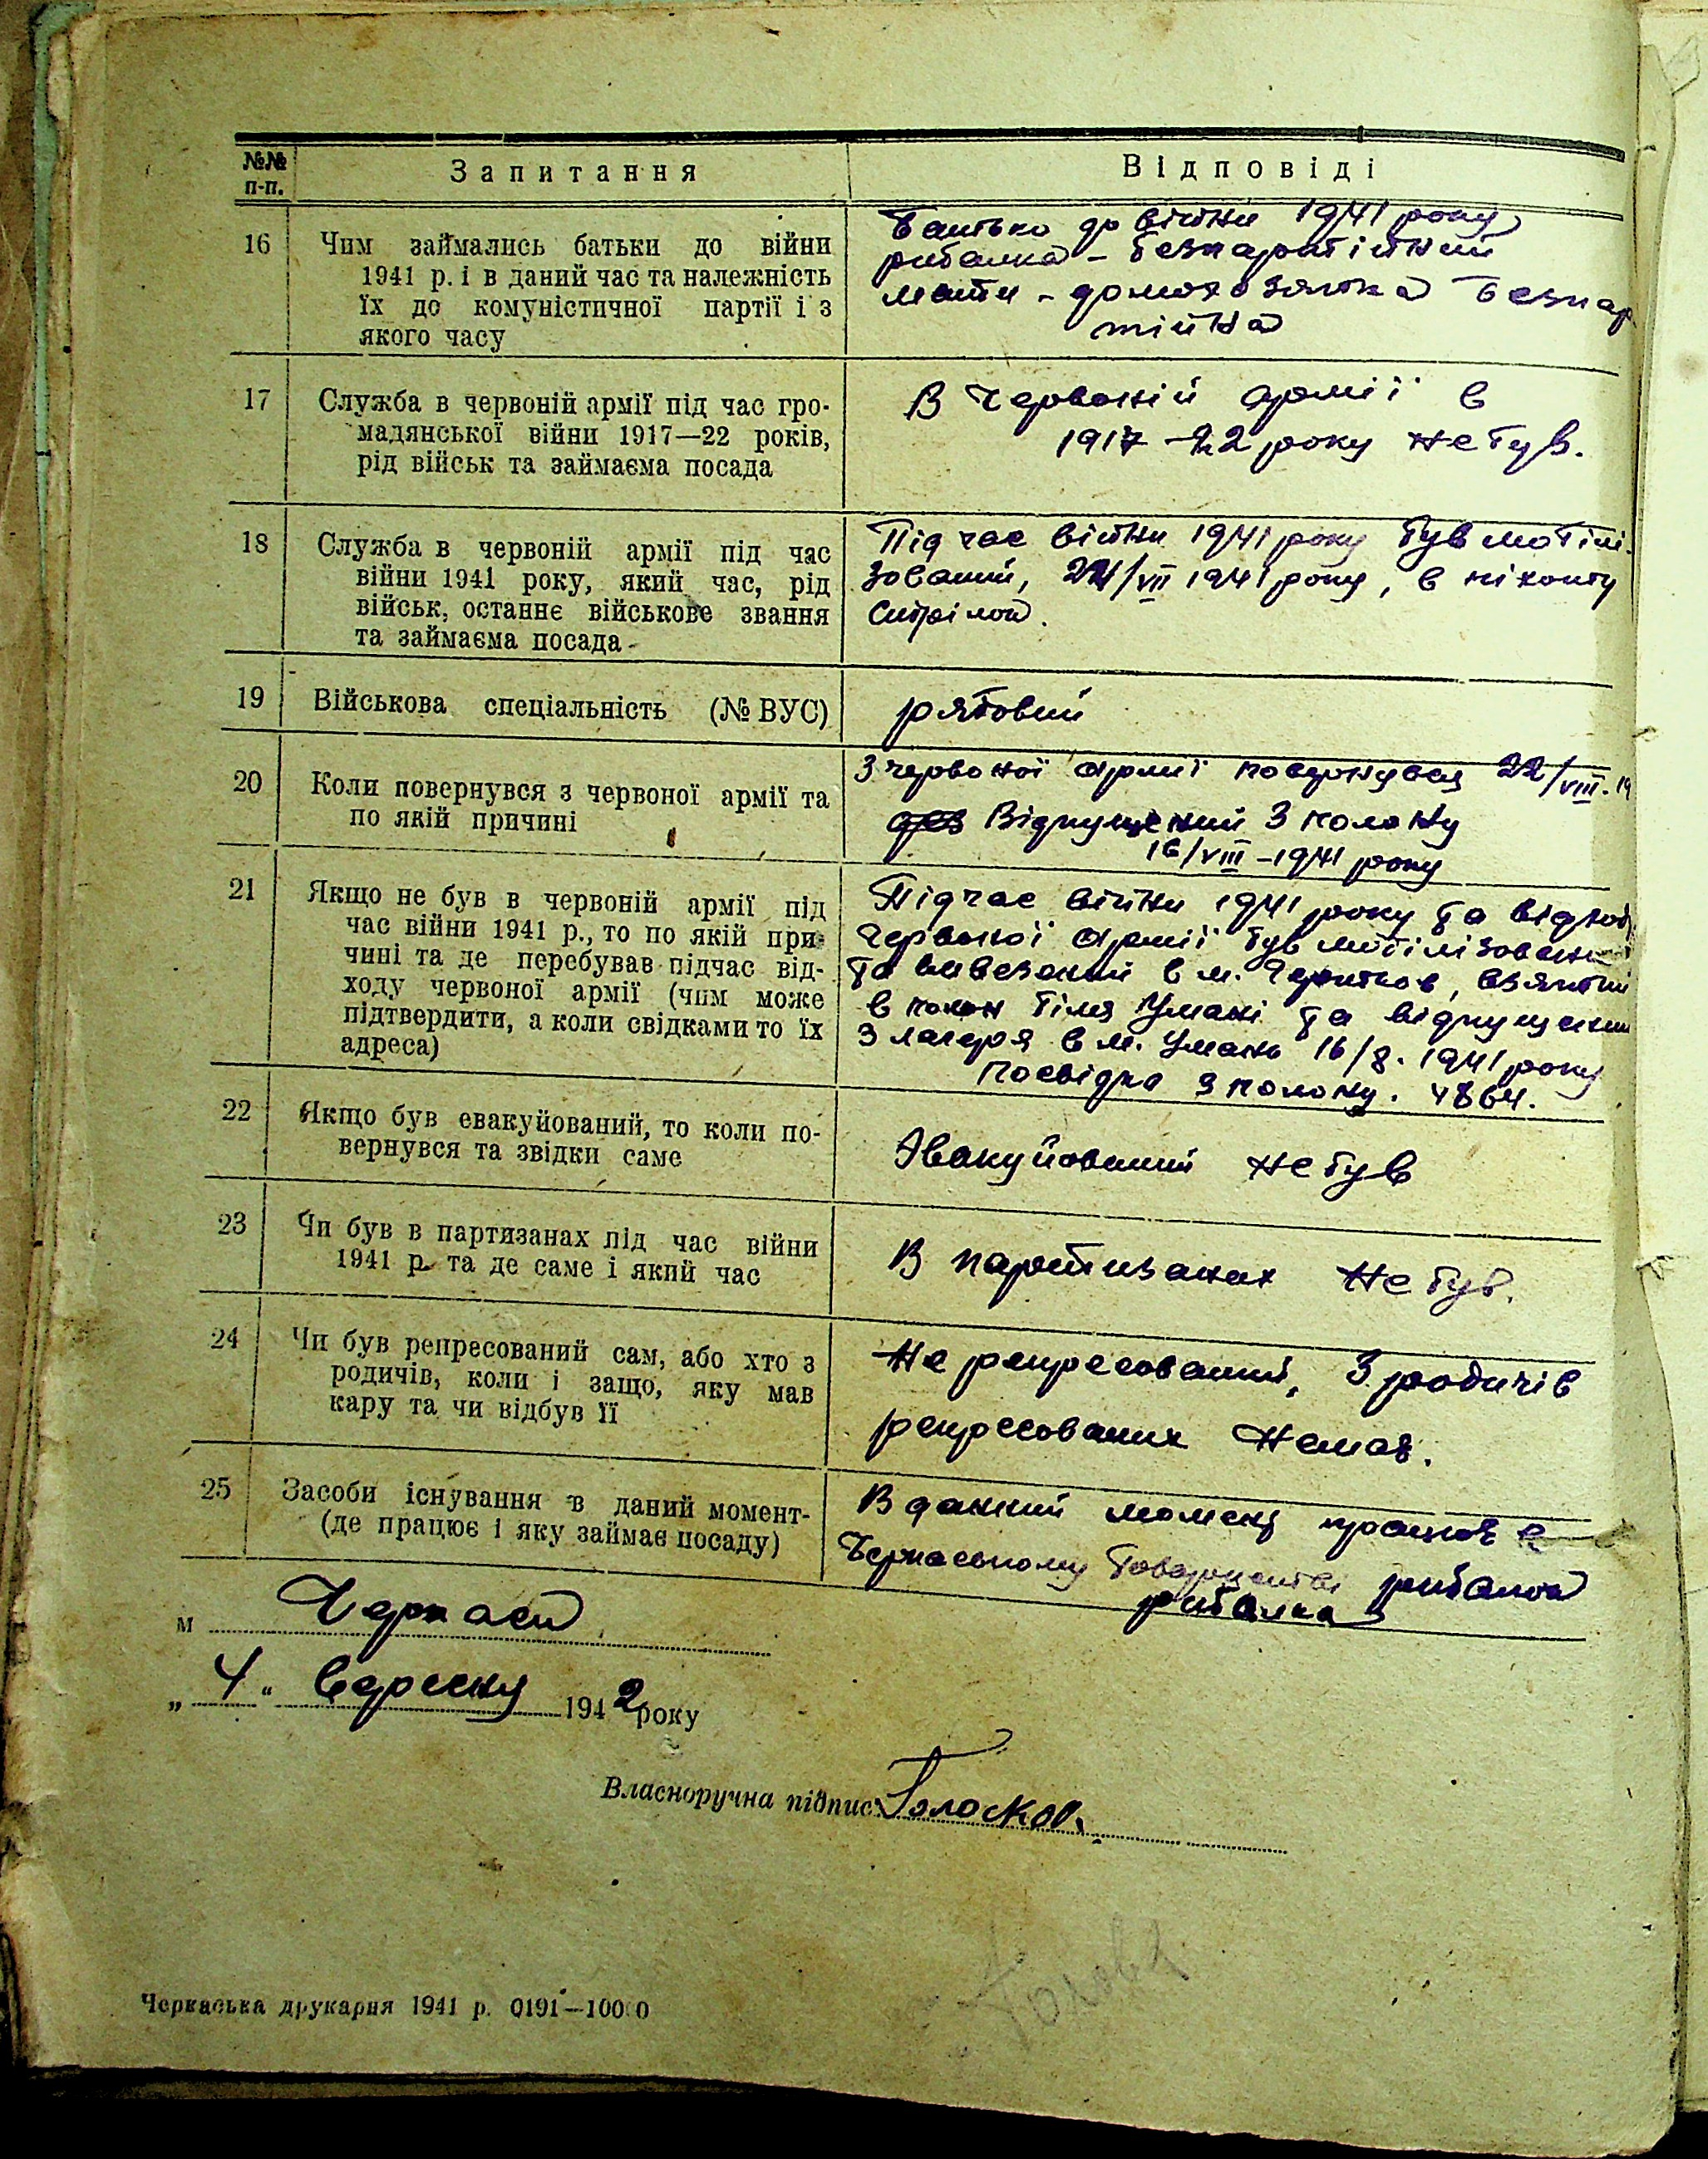 №№ п-п.
Запитання
Відповіді
16
Чим займались батьки до війни
1941 р. і в даний час та належність
їх до комуністичної партії і з
якого часу
Батько до війни 1941 року
рибалка – безпартійний
мати – домохозяйка безпар
тійна
17
Служба в червоній армії під час гро-
мадянської війни 1917—22 років,
рід військ та займаєма посада
В Червоній армії в
1917–22 року не був.
18
Служба в червоній армії під час
війни 1941 року, який час, рід
військ, останнє військове звання
та займаєма посада
Під час війни 1941 року був мобілі-
зований, /VII 1941 року, в піхоту
19
Військова спеціальність (№ ВУС)
рядовий
20
Коли повернувся з червоної армії та
по якій причині
З червоної армії повернувся 22/VIII. 19
Відпущений з полону
16/VIII – 1941 року
21
Якщо не був в червоній армії під
час війни 1941 р., то по якій при-
чині та де перебував підчас від-
ходу червоної армії (чим може
підтвердити, а коли свідками то їх
адреса)
Підчас війни 1941 року та відход
Червоної армії був мобілізований
та вивезений в м. , взятий
в полон біля Умані та відпущений
з лагеря в м. Умань 16/8. 1941 року
Посвідка з полону. 4864.
22
Якщо був евакуйований, то коли по-
вернувся та звідки саме
Эвакуйований не був
23
Чи був в партизанах під час війни
1941 р. та де саме і який час
В партизанах не був.
24
Чи був репресований сам, або хто з
родичів, коли і защо, яку мав
кару та чи відбув її
Не репресований, З родичів
репресованих немає.
25
Засоби існування в даний момент-
(де працює і яку займає посаду)
В данний момент працює в
Черкаському Товаристві рибалка
рибалка
м Черкаси
„ 4 “ вересня 1942 року
Власноручна підпис:
Черкаська друкарня 1941 р. 0191—10000